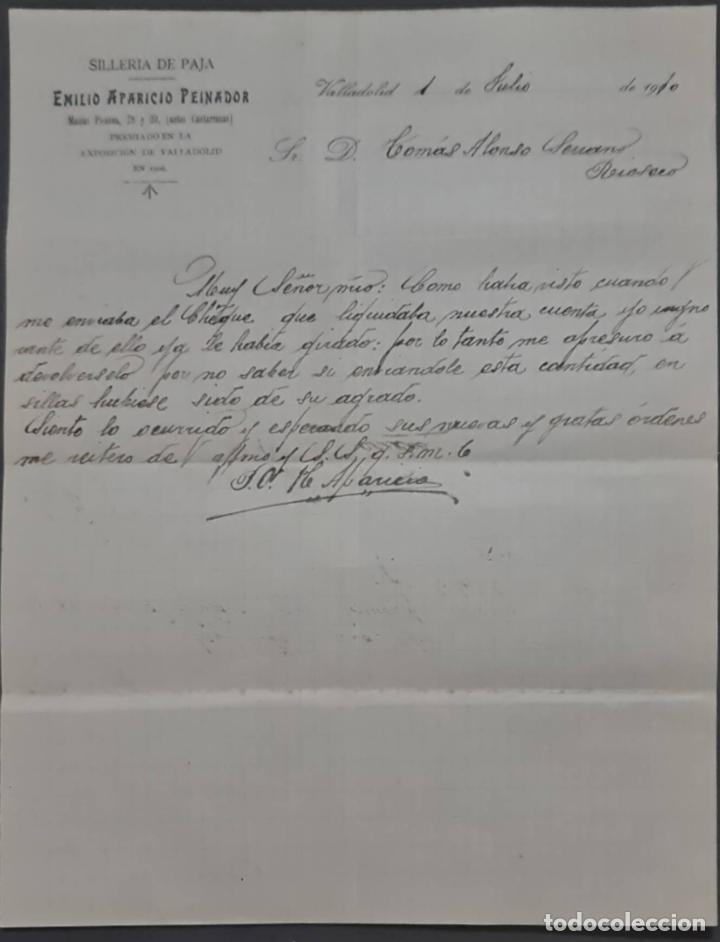 SILLERIA DE PAJA
EMILIO APARICIO PEINADOR
Macías Picavea, 28 y 30, (antes Cantarranas)
PREMIADO EN LA
EXPOSICIÓN DE VALLADOLID
EN 1906.
Valladolid 1 de Julio de 1910
Sr. D. Tomás Alonso Serrano
Rioseco
Muy Señor mio: Como habia visto cuando V
me enviaba el Chèque que liquidaba nuestra cuenta, yo
rante de ello ya le habia girado: por lo tanto me apresuro á
devolverselo por no saber si enviandole esta cantidad, en
sillas hubiese sido de su agrado.
Siento lo ocurrido y esperando sus nuevas y gratas órdenes
me reitero de V afmo y S. S. q. s. m. b
Aparicio
todocoleccion